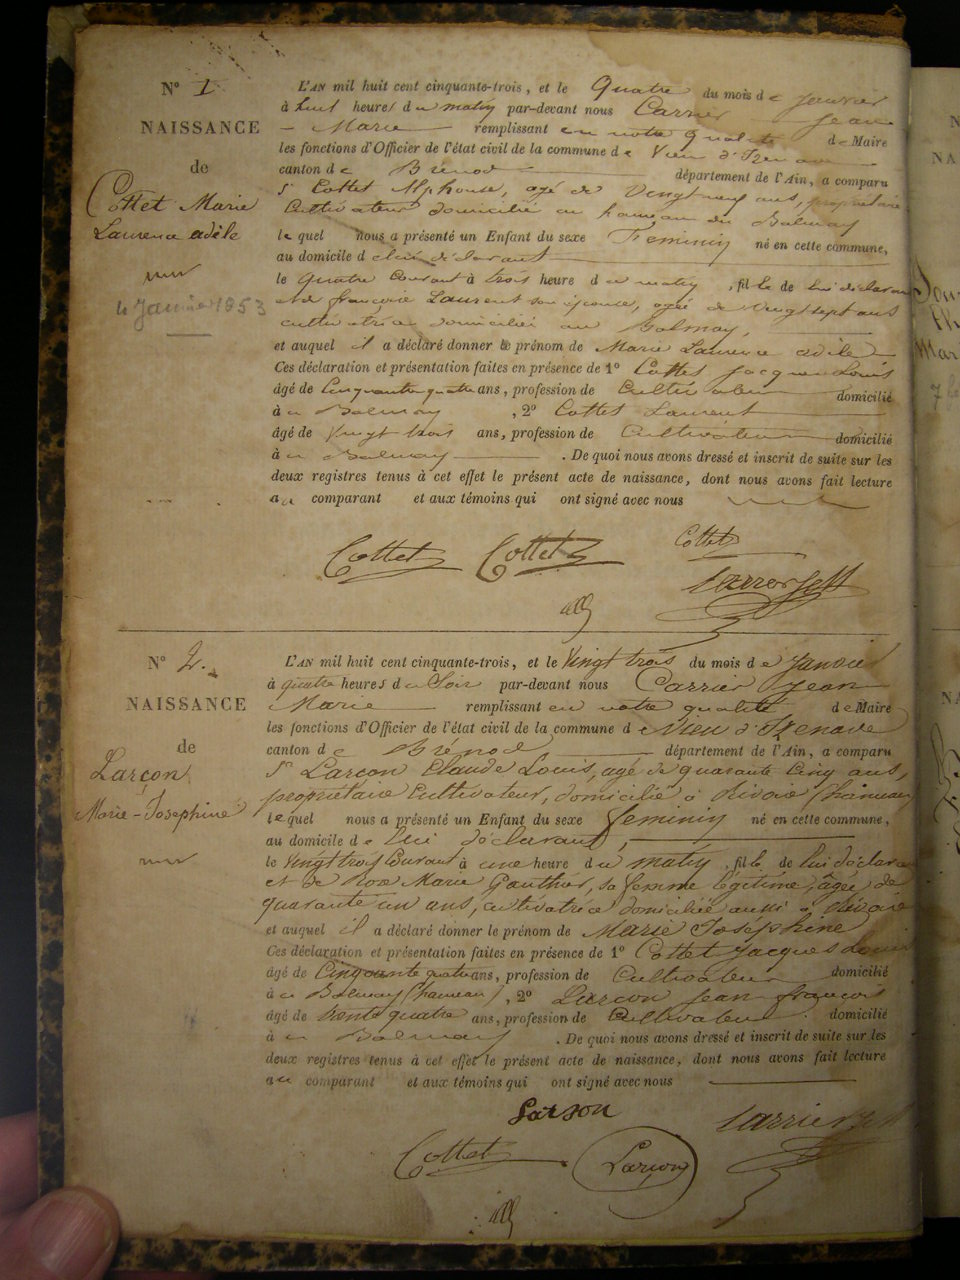 N° 1
NAISSANCE
de
Cottet Marie
Laurence adèle
4 Janvier 1853
L'AN mil huit cent cinquante-trois, et le Quatre du mois de Janvier
à huit heures du matin par-devant nous Carrier Jean
Marie remplissant en notre qualité de Maire
les fonctions d'Officier de l'état civil de la commune de Vieu d'Izenave
canton de Brénod département de l'Ain, a comparu
Sr Cottet Alphonse, agé de Vingt neuf ans, propriétaire
Cultivateur domicilié au hameau du Balmay
lequel nous a présenté un Enfant du sexe Feminin né en cette commune,
au domicile de lui déclarant
le quatre Courant à trois heure du matin, fille de lui déclarant
et de françoise Laurent son épouse, agée de Vingt sept ans
cultivatrice domiciliée au Balmay,
et auquel il a déclaré donner le prénom de Marie Laurence adèle
Ces déclaration et présentation faites en présence de 1° Cottet Jacques Louis
âgé de Cinquante quatre ans, profession de Cultivateur domicilié
à au Balmay, 2° Cottet Laurent
âgé de Vingt trois ans, profession de Cultivateur domicilié
à au Balmay. De quoi nous avons dressé et inscrit de suite sur les
deux registres tenus à cet effet le présent acte de naissance, dont nous avons fait lecture
au comparant et aux témoins qui ont signé avec nous
Cottet Cottet Cottet
N° 2.
NAISSANCE
de
Larçon
Marie-Josephine
L'AN mil huit cent cinquante-trois, et le Vingt trois du mois de Janvier
à quatre heures du Soir par-devant nous Carrier Jean
Marie remplissant en notre qualité de Maire
les fonctions d'Officier de l'état civil de la commune de Vieu d'Izenave
canton de Brénod, département de l'Ain, a comparu
Sr Larçon Claude Louis, agé de quarante Cinq ans,
propriétaire Cultivateur, domicilié à Chevoir (hameau
lequel nous a présenté un Enfant du sexe feminin né en cette commune,
au domicile de lui déclarant,
le Vingt trois Courant à une heure du matin, fille de lui déclarant
et de Rose Marie Gauthier, sa femme légitime, âgée de
quarante un ans, cultivatrice domiciliée aussi à
et auquel il a déclaré donner le prénom de Marie Josephine
Ces déclaration et présentation faites en présence de 1° Cottet Jacques Louis
âgé de Cinquante quatre ans, profession de Cultivateur domicilié
à au Balmay (hameau), 2° Larçon Jean françois
âgé de trente quatre ans, profession de Cultivateur domicilié
à au Balmay. De quoi nous avons dressé et inscrit de suite sur les
deux registres tenus à cet effet le présent acte de naissance, dont nous avons fait lecture
au comparant et aux témoins qui ont signé avec nous
Larson
Cottet Larçon Carrier